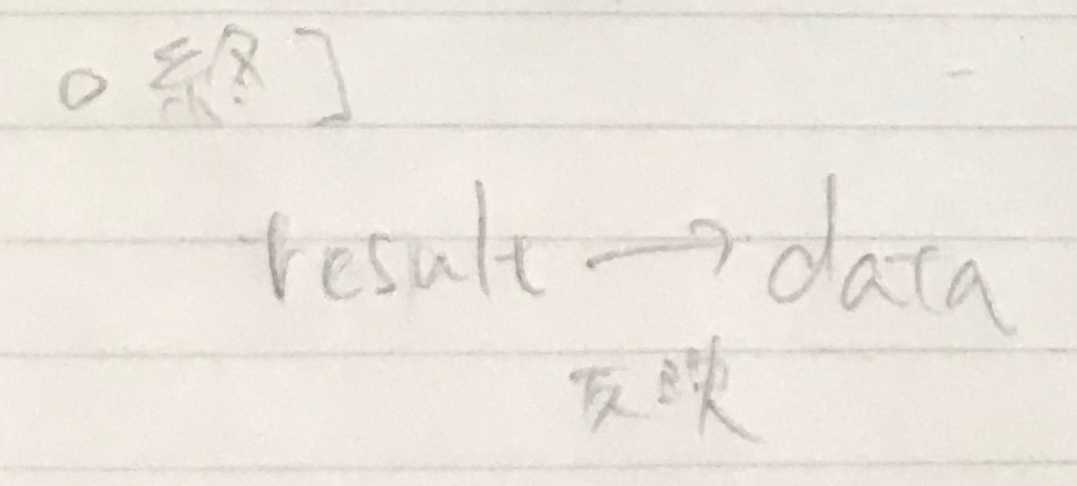 ○ 終]
result → data
反映